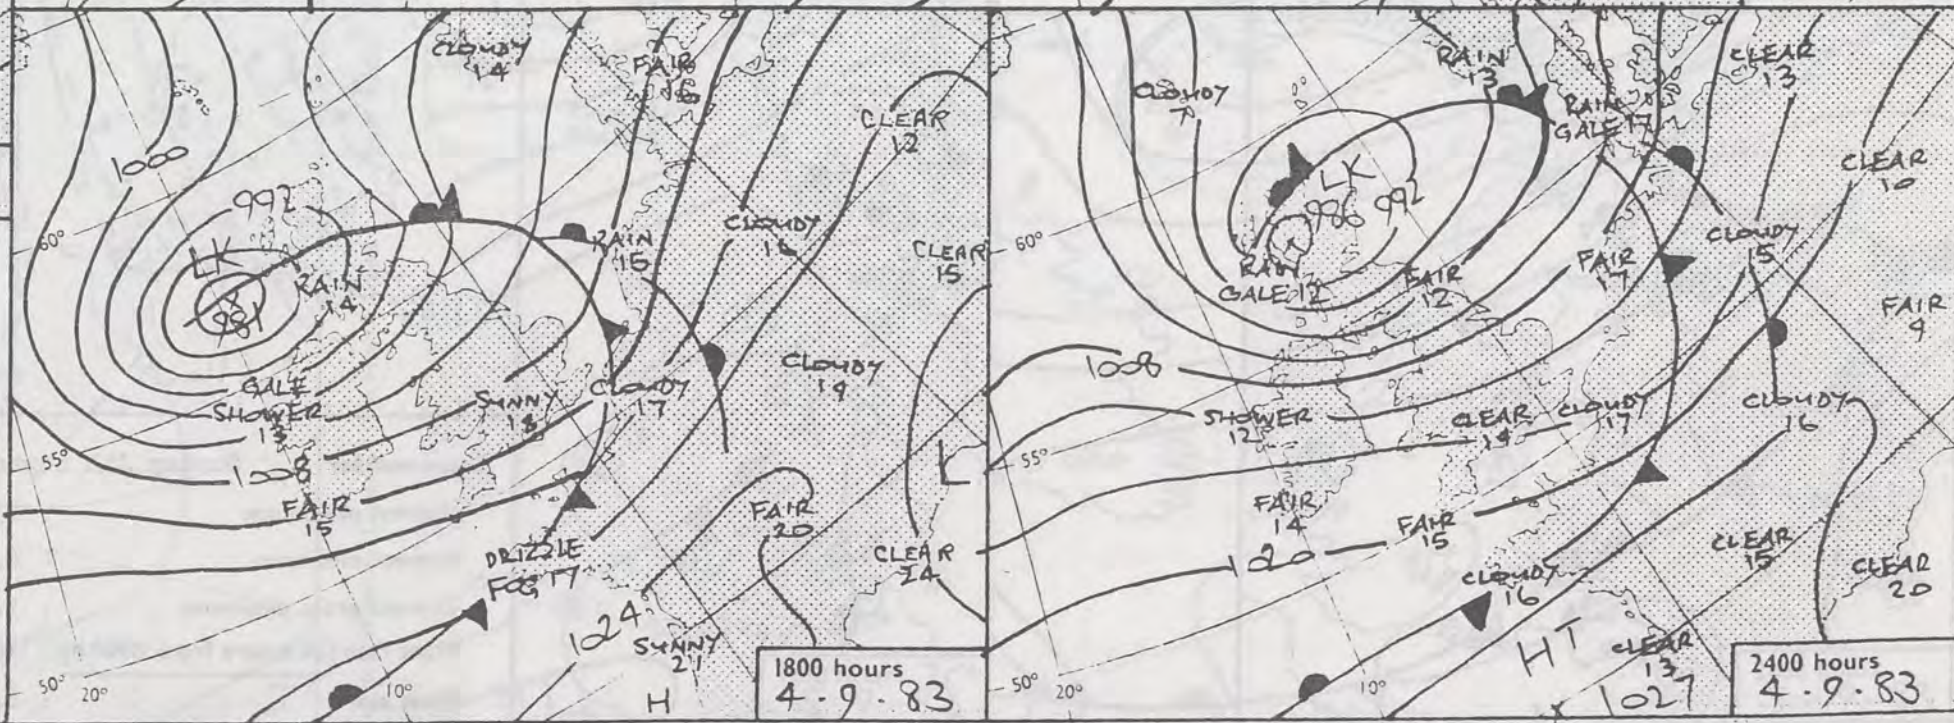 CLOUDY
14
FAIR
16
CLEAR
12
1000
992
60°
LK
981
RAIN
14
RAIN
15
CLOUDY
16
CLEAR
15
GALE
SHOWER
13
SUNNY
18
CLOUDY
17
CLOUDY
19
L
55°
1008
FAIR
15
FAIR
20
DRIZZLE
FOG 17
CLEAR
24
1024
SUNNY
21
H
50°
20°
10°
1800 hours
4.9.83
CLOUDY
7
RAIN
13
CLEAR
13
RAIN
GALE 17
CLEAR
10
LK
986
992
60°
RAIN
GALE 12
FAIR
12
FAIR
17
CLOUDY
15
FAIR
9
1008
SHOWER
12
CLEAR
14
CLOUDY
17
CLOUDY
16
55°
FAIR
14
FAIR
15
1020
CLOUDY
16
CLEAR
15
CLEAR
20
HT
CLEAR
13
1027
50°
20°
10°
2400 hours
4.9.83